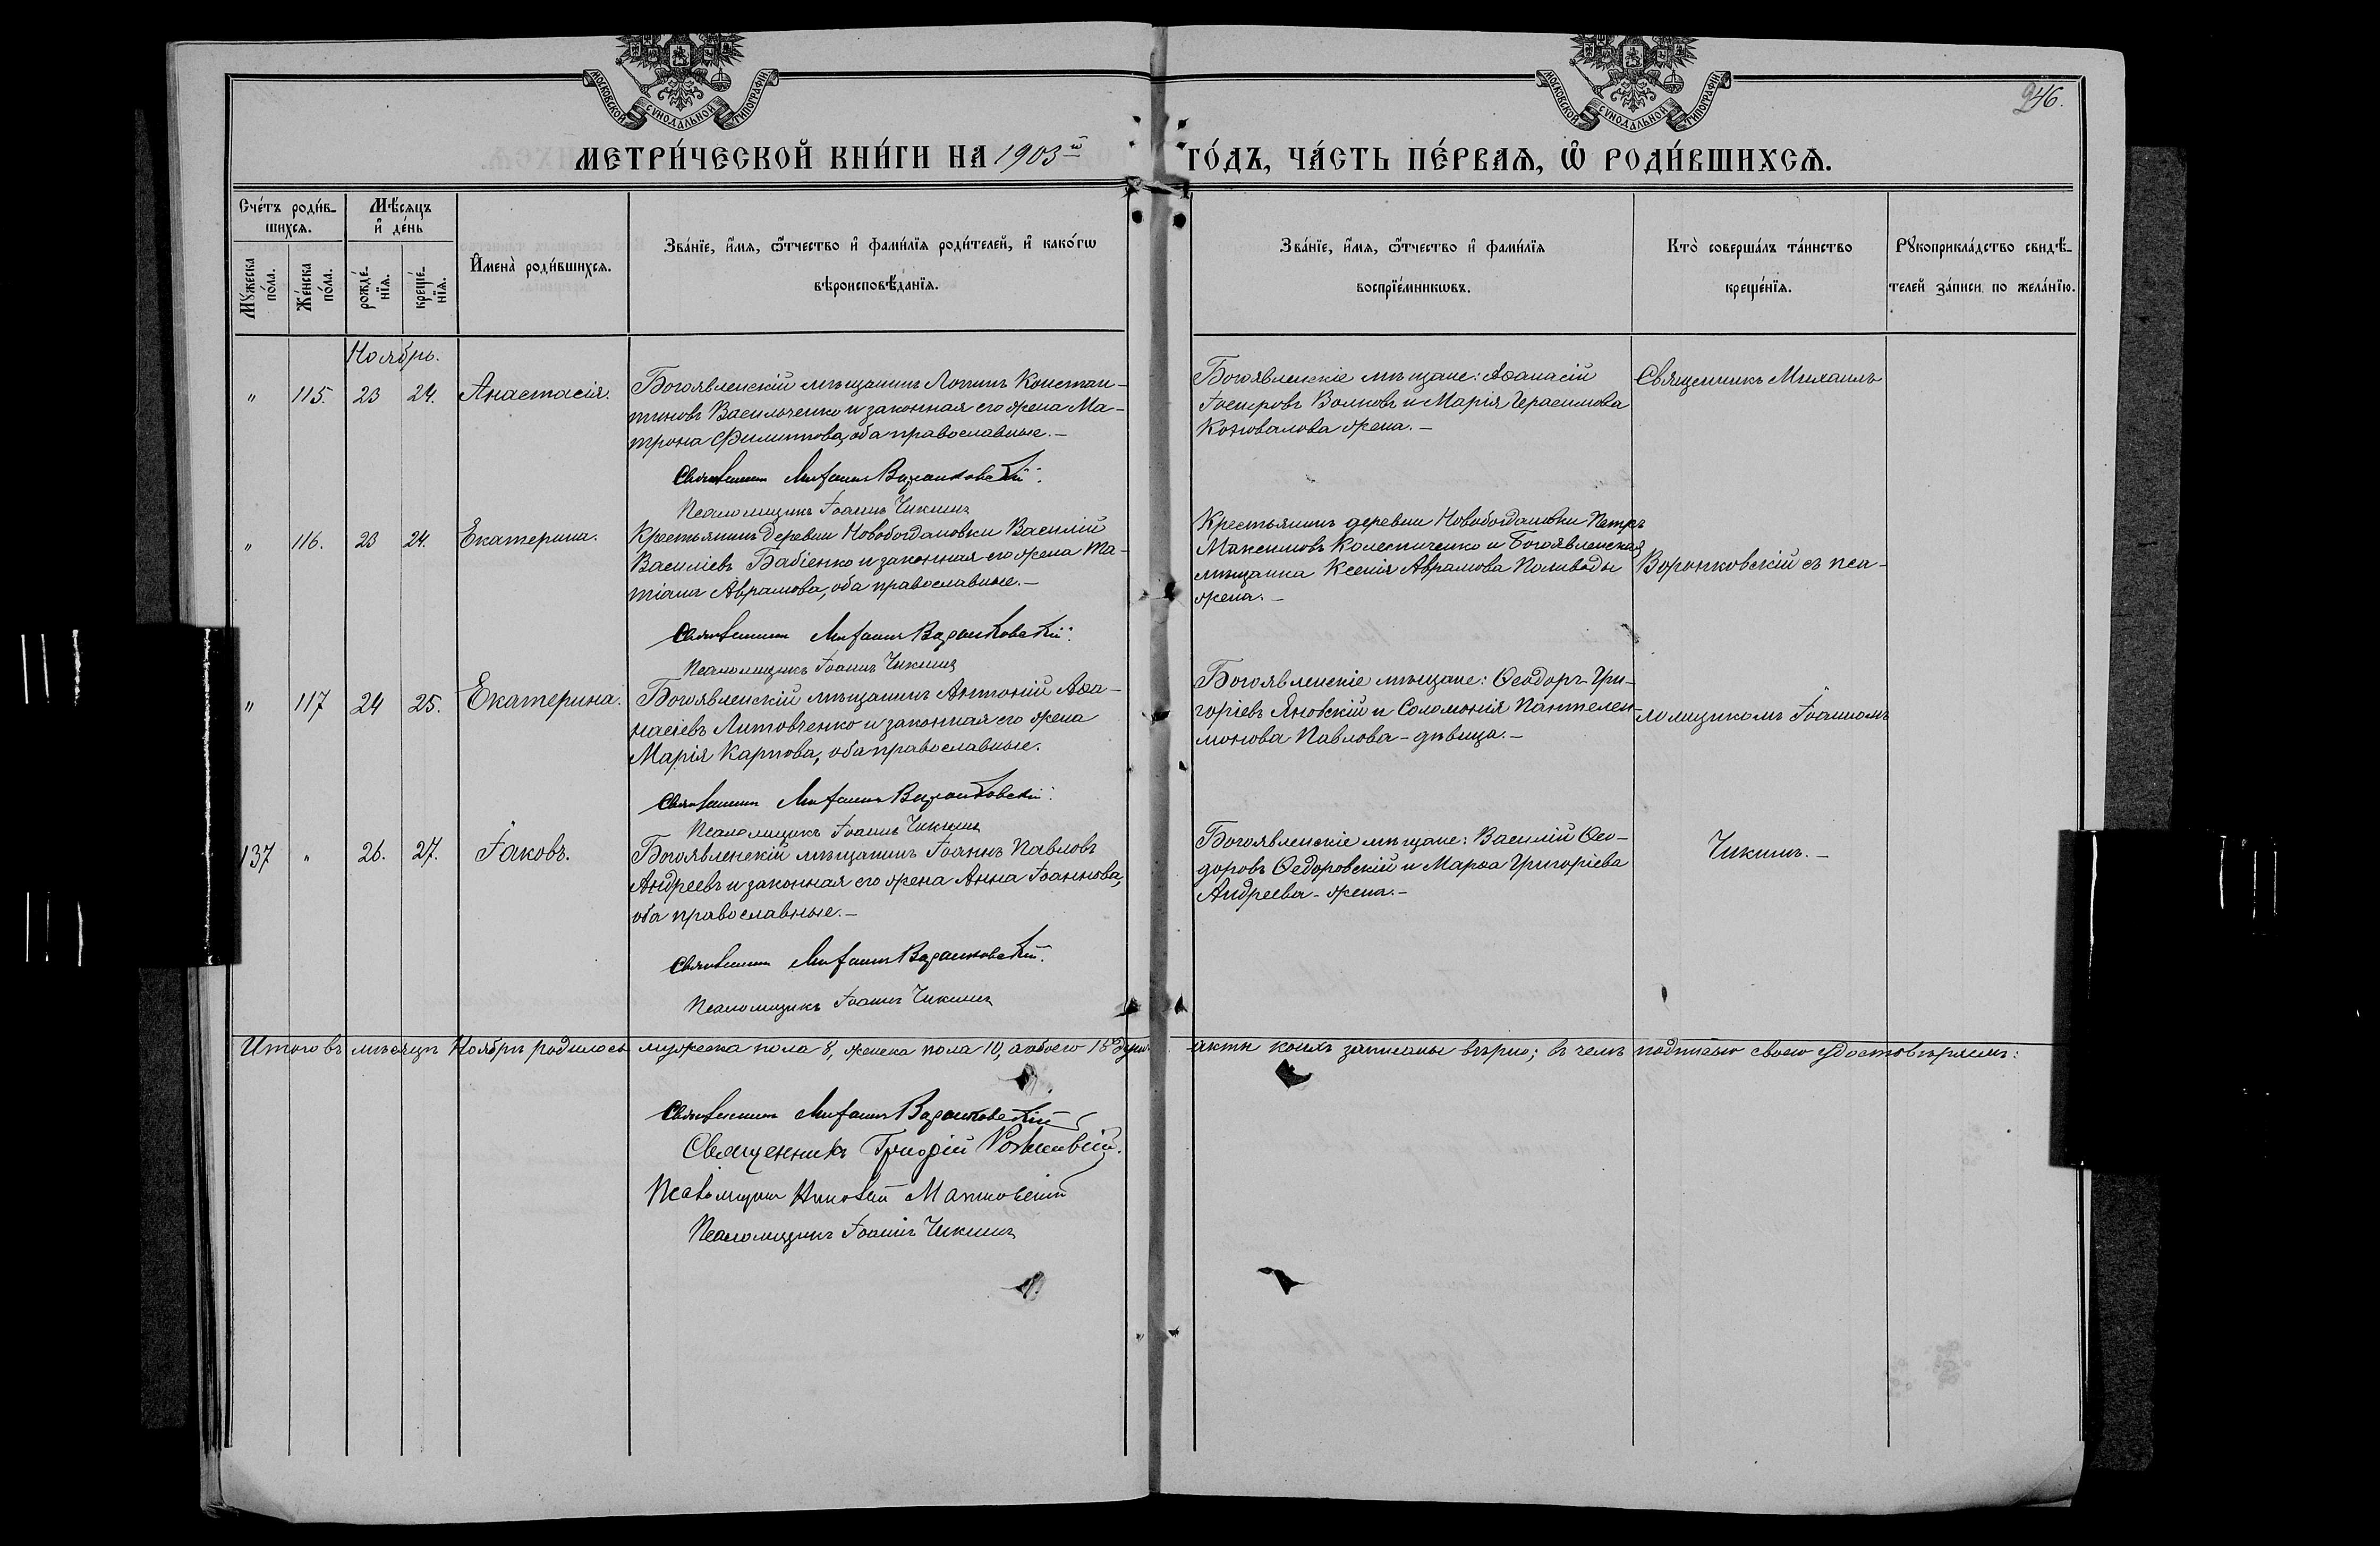 МОСКОВСКОЙ СѴНОДАЛЬНОЙ ТИПОГРАФІИ
МОСКОВСКОЙ СѴНОДАЛЬНОЙ ТИПОГРАФІИ
246.
МЕТРИ́ЧЕСКОЙ КНИ́ГИ НА 1903й ГО́ДЪ, ЧА́СТЬ ПЕ́РВАѦ, Ѡ҆ РОДИ́ВШИХСѦ.
Сче́тъ роди́в-
шихсѧ.
Мѣ́сѧцъ
и҆ де́нь
Мꙋ́жеска
по́ла.
Же́нска
по́ла.
рожде́-
нїѧ.
креще́-
нїѧ.
И҆мена̀ роди́вшихсѧ.
Зва́нїе, и҆́мѧ, ѻ҆́тчество и҆ фами́лїѧ роди́телей, и҆ како́гѡ
вѣроисповѣ́данїѧ.
Зва́нїе, и҆́мѧ, ѻ҆́тчество и҆ фами́лїѧ
воспрїе́мникѡвъ.
Кто̀ соверша́лъ та́инство
креще́нїѧ.
Рꙋкоприкла́дство свидѣ́-
телей за́писи по жела́нїю.
Ноябрь.
" 115. 23 24. Анастасія.
Богоявленскій мѣщанинъ Логинъ Констан-
тиновъ Васильченко и законная его жена Ма-
трона Филиппова, оба православные.-
Священникъ Михаилъ Воронковскій.
Псаломщикъ Іоаннъ Чикинъ
Богоявленскіе мѣщане: Аѳанасій
Волковъ и Марія Герасимова
Коновалова жена.-
Священникъ Михаилъ
" 116. 23 24. Екатерина.
Крестьянинъ деревни Новобогдановки Василій
Василіевъ Бабіенко и законная его жена Та-
тіана Аврамова, оба православные.-
Священникъ Михаилъ Воронковскій.
Псаломщикъ Іоаннъ Чикинъ
Крестьянинъ деревни Новобогдановки Петръ
Максимовъ Колесниченко и Богоявленская
мѣщанка Ксенія Аврамова Поливоды
жена.-
Воронковскій съ пса-
" 117 24 25. Екатерина.
Богоявленскій мѣщанинъ Антоній Аѳа-
насіевъ Литовченко и законная его жена
Марія Карпова, оба православные.
Священникъ Михаилъ Воронковскій.
Псаломщикъ Іоаннъ Чикинъ
Богоявленскіе мѣщане: Ѳеодоръ Гри-
горіевъ Яновскій и Соломонія Пантелеи-
монова Павлова-дѣвица.-
ломщикомъ Іоанномъ
137 " 26. 27. Іаковъ.
Богоявленскій мѣщанинъ Іоаннъ Павловъ
Андреевъ и законная его жена Анна Іоаннова,
оба православные.-
Священникъ Михаилъ Воронковскій.
Псаломщикъ Іоаннъ Чикинъ
Богоявленскіе мѣщане: Василій Ѳео-
доровъ Ѳедоровскій и Марѳа Григоріева
Андреева-жена.-
Чикинъ.-
Итого въ мѣсяцѣ Ноябрѣ родилось мужеска пола 8, женска пола 10, а обоего 18 душъ акты коихъ записаны вѣрно; въ чемъ подписью своею удостовѣряемъ:
Священникъ Михаилъ Воронковскій
Священникъ Григорій
Псаломщикъ Николай
Псаломщикъ Іоаннъ Чикинъ